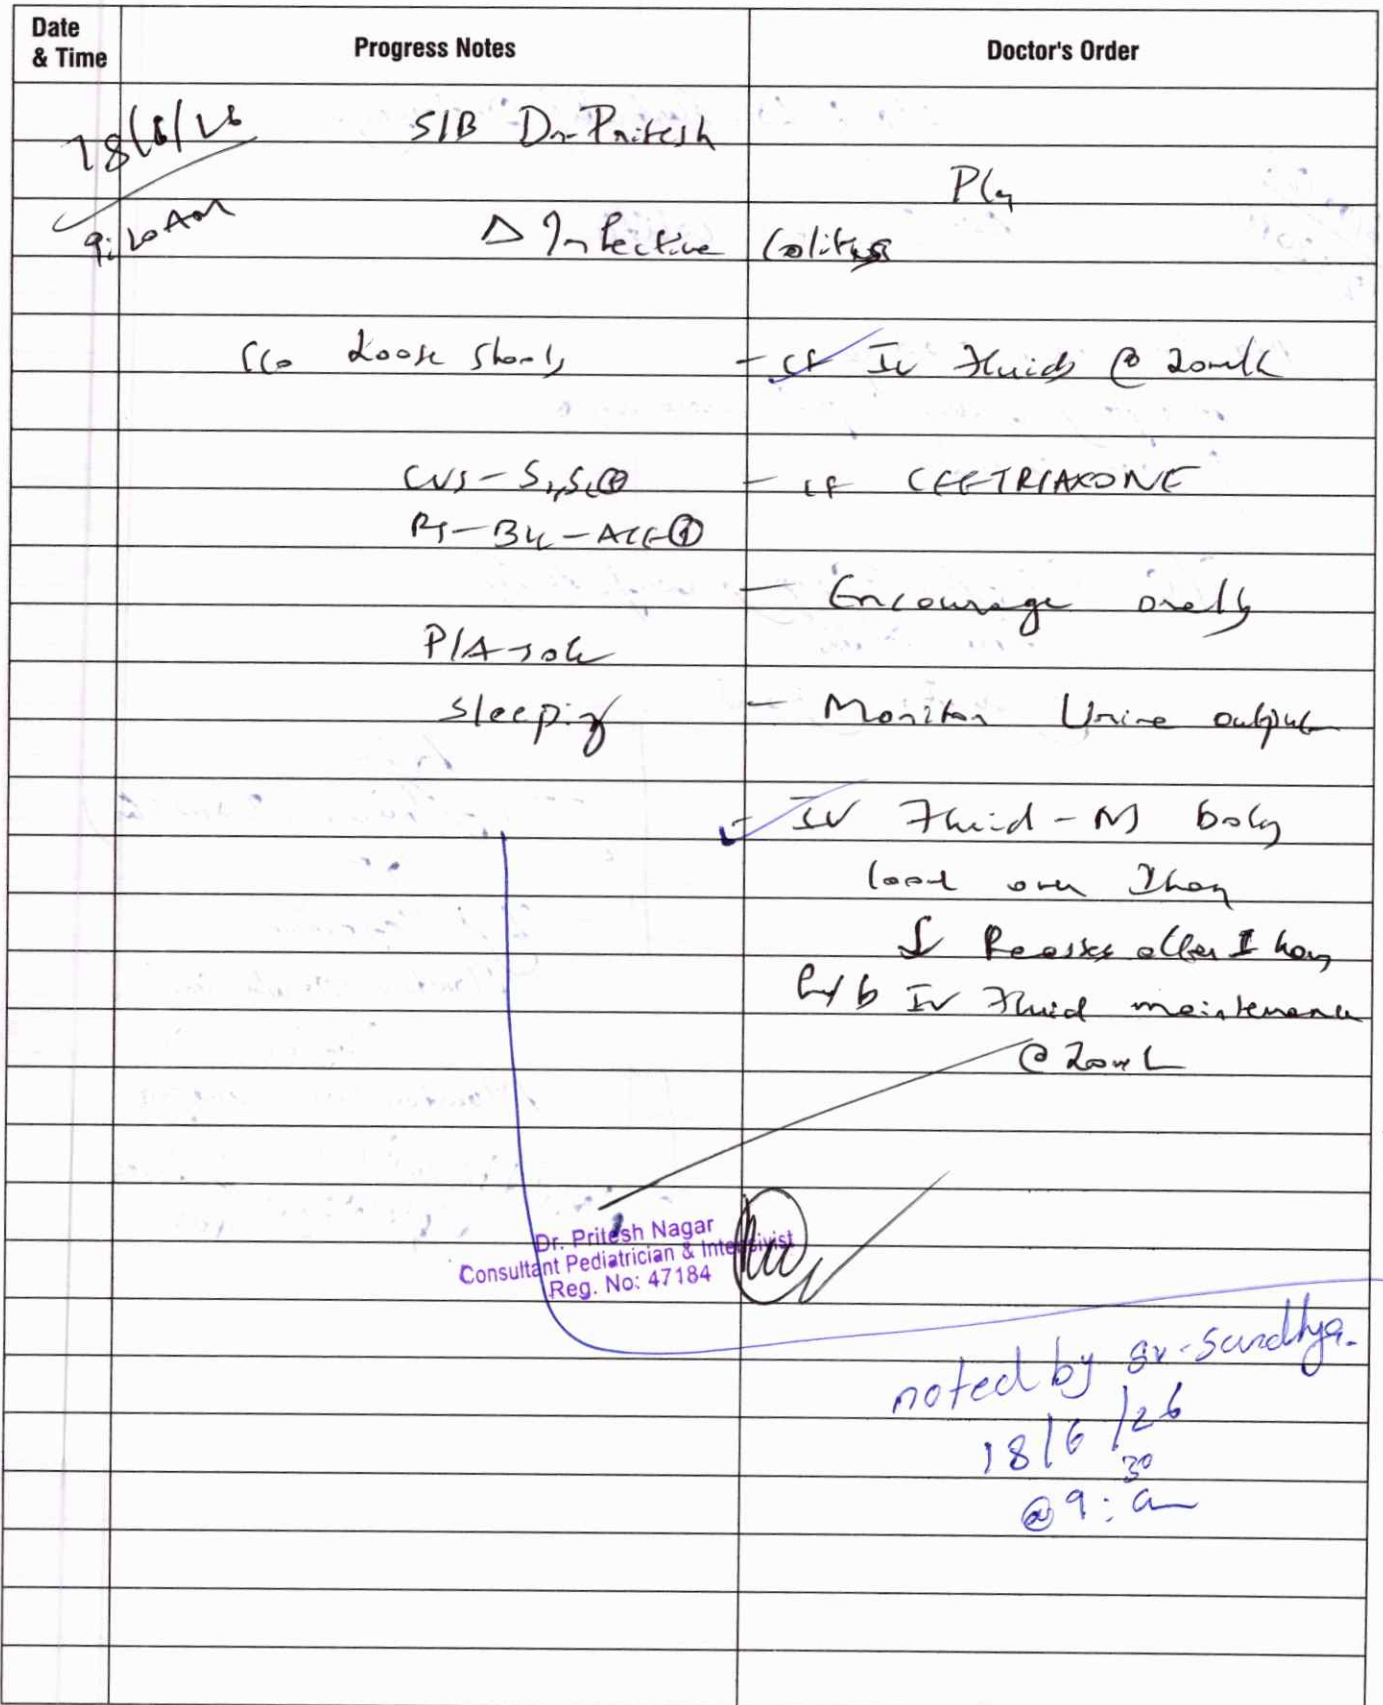 Date & Time
Progress Notes
Doctor's Order
18/6/26
S/B Dr. Pritesh
Plan
9:20 AM
Δ Infective Colitis
c/o Loose stools
- CT IV Fluids @ 20ml/h
CVS - S1, S2 ⊕
- CT CEFTRIAXONE
RS - B/L - AE ⊕
- Encourage orally
P/A - soft
sleeping
- Monitor Urine output
- IV Fluid - NS bolus
over 1 hour
↓ Reassess after 1 hour
f/b IV Fluid maintenance
@ 20ml
Dr. Pritesh Nagar
Consultant Pediatrician & Intensivist
Reg. No: 47184
noted by sr. Sandhya.
18/6/26
@ 9:30 am